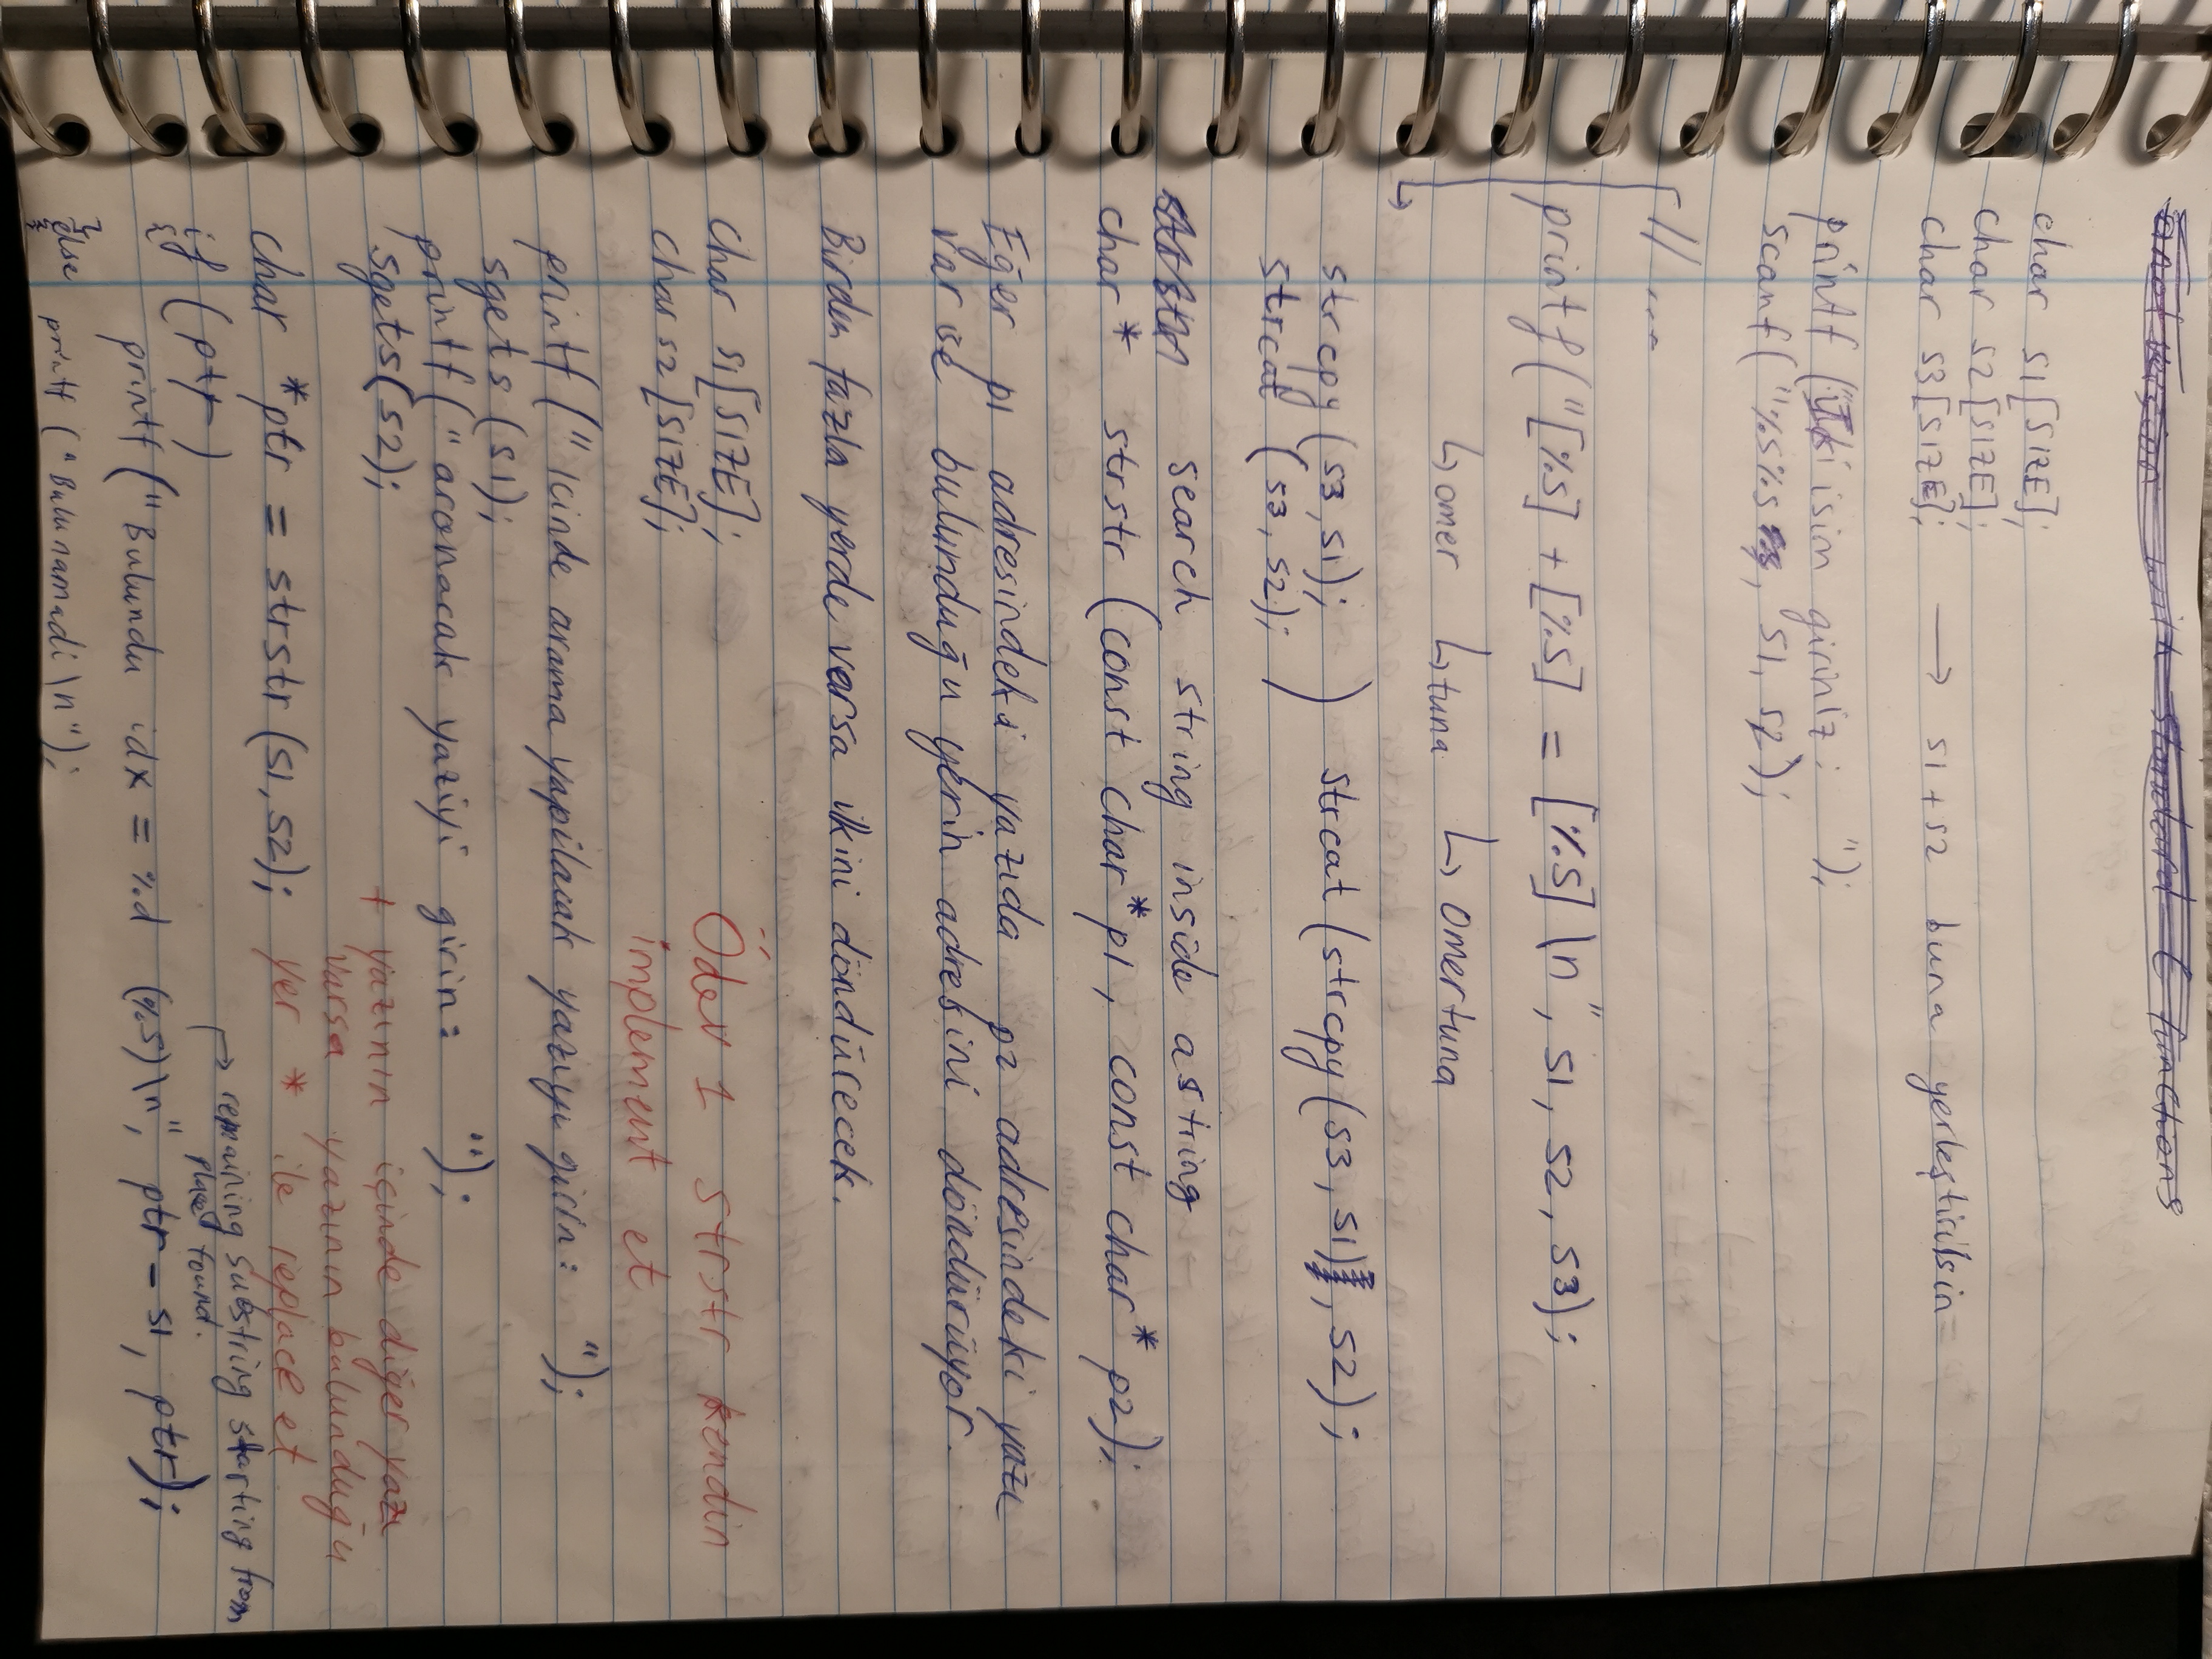 version with standard C functions
char s1[SIZE];
char s2[SIZE];
char s3[SIZE]; → s1+s2 buna yerleştirilsin
printf("iki isim giriniz: ");
scanf("%s%s , s1, s2);
// ...
printf("[%s] + [%s] = [%s] \n", s1, s2, s3);
↳ omer ↳ tuna ↳ omertuna
strcpy(s3,s1); ) strcat(strcpy(s3, s1), s2);
strcat (s3, s2);
search string inside a string
char* strstr (const char* p1, const char* p2);
Eğer p1 adresindeki yazıda p2 adresindeki yazı
var ise bulunduğu yerin adresini döndürüyor.
Birden fazla yerde varsa ilkini döndürecek.
char s1[SIZE];
char s2[SIZE];
Ödev 1 strstr kendin
implement et
printf(" Icinde arama yapilacak yazıyı girin: ");
sgets(s1);
printf(" aranacak yaziyi girin: ");
sgets(s2);
+ yazının içinde diğer yazı
varsa yazının bulunduğu
yer * ile replace et
char *ptr = strstr(s1,s2);
→ remaining substring starting from
place found.
if (ptr)
{
printf("Bulundu idx = %d (%s)\n", ptr - s1, ptr);
}
else printf ("Bulunamadi \n");